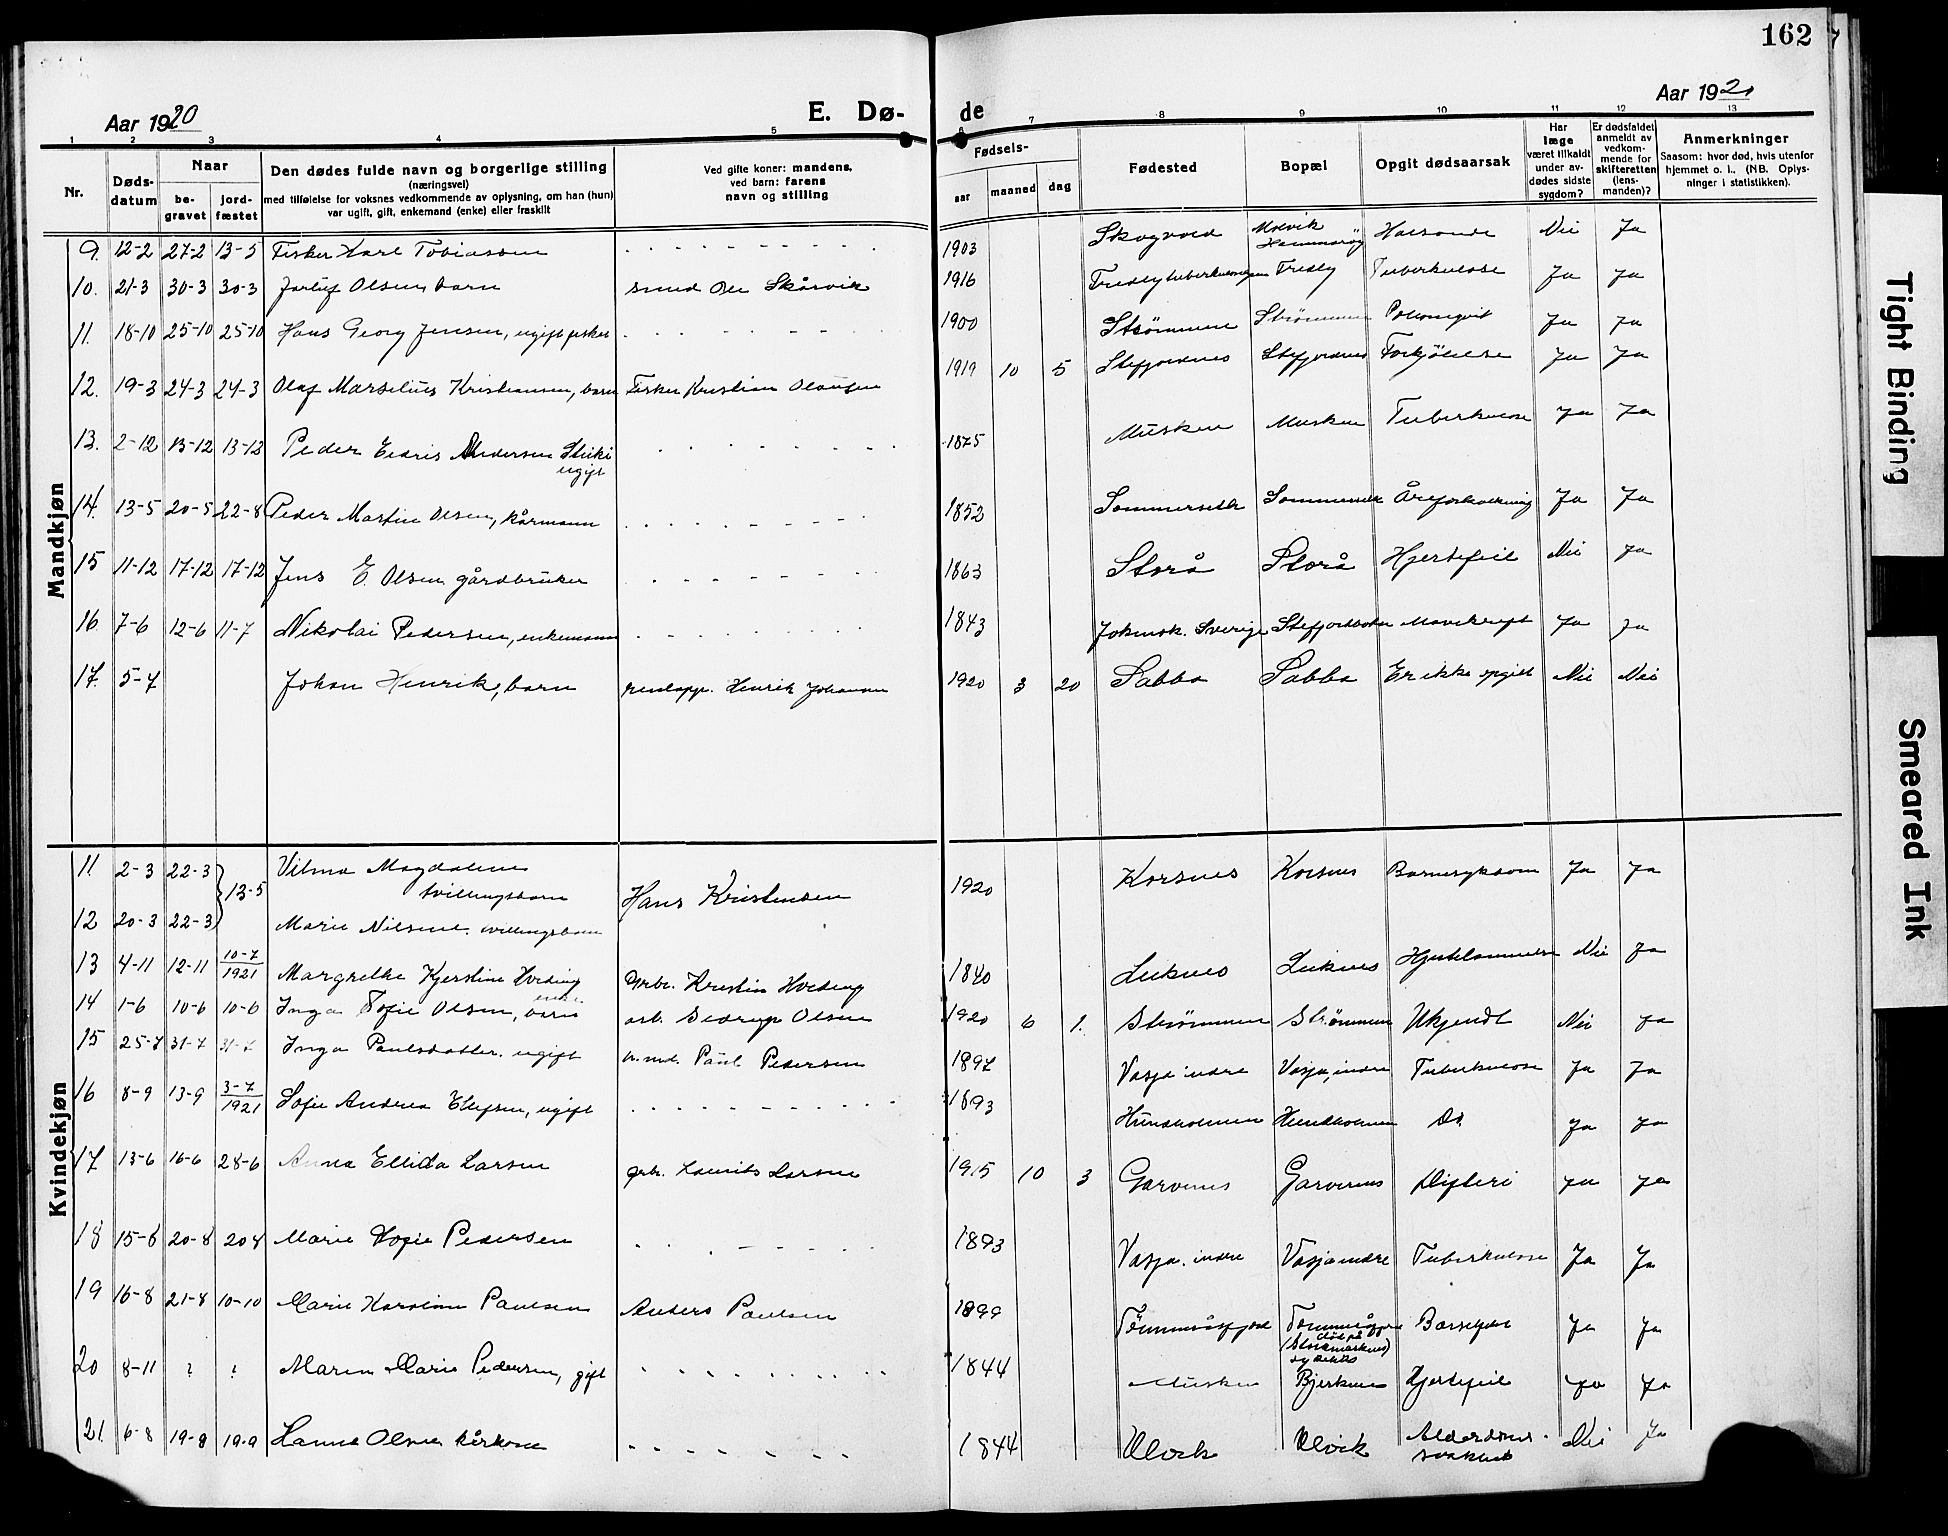 162
Aar 1920 E. Dø- de Aar 1920
1 2 3 4 5 6 7 8 9 10 11 12 13
Nr. Døds-datum Naar be-gravet jord-fæstet Den dødes fulde navn og borgerlige stilling (næringsvei) med tilføielse for voksnes vedkommende av oplysning, om han (hun) var ugift, gift, enkemand (enke) eller fraskilt Ved gifte koner: mandens, ved barn: farens navn og stilling Fødsels- aar maaned dag Fødested Bopæl Opgit dødsaarsak Har læge været tilkaldt under av-dødes sidste sygdom? Er dødsfaldet anmeldt av vedkom-mende for skifteretten (lens-manden)? Anmerkninger Saasom: hvor død, hvis utenfor hjemmet o. l., (NB. Oplys-ninger i statistikken).
Mandkjøn
9. 12-2 27-2 13-5 Fisker Karl Tobiassen 1903 Skogvold Hammarøy Nei Ja
10. 21-3 30-3 30-3 Olsen barn smed Skårvik 1916 Tredby Tuberkulose Ja Ja
11. 18-10 25-10 25-10 Hans Georg Jensen, ugift fisker 1900 Strømmen Strømmen Ja Ja
12. 19-3 24-3 24-3 Olaf Marselius Kristiansen, barn Fisker Kristian Olausen 1919 10 5 Stefjordnes Stefjordnes Forkjølelse Ja Ja
13. 2-12 13-12 13-12 Peder Andersen ugift 1875 Musken Musken Tuberkulose Ja Ja
14. 13-5 20-5 22-8 Peder Martin Olsen, kårmann 1852 Sommerseth Sommerseth Åreforkalkning Ja Ja
15 11-12 17-12 17-12 Jens E. Olsen gårdbruker 1863 Storå Storå Hjertefeil Nei Ja
16. 7-6 12-6 11-7 Nikolai Pedersen, enkemann 1843 Jokmok. Sverige Stefjordbotn Mavekreft Ja Ja
17. 5-7 Johan Henrik, barn Henrik Johansen 1920 3 20 Sabba Sabba Er ikke opgitt Nei Nei
Kvindekjøn
11. 2-3 22-3 13-5 Vilma Magdalena tvillingbarn Hans Kristensen 1920 Korsnes Korsnes Barnesykdom Ja Ja
12 20-3 22-3 Marie Nilsine. tvillingbarn
13 4-11 12-11 10-7 1921 Margrethe Kjerstine Hveding enke Grbr. Kristin Hveding 1840 Leknes Leknes Hjertelammelse Nei Ja
14 1-6 10-6 10-6 Inga Sofie Olsen, barn arb. Olsen 1920 6 1. Strømmen Strømmen Ukjendt Nei Ja
15 25-7 31-7 31-7 Inga Paulsdatter. ugift Paul Pedersen 1897 Vasja indre Vasja, indre Tuberkulose Ja Ja
16 8-9 13-9 3-7 1921 Sofie Andrea Ellefsen, ugift 1893 Hundholmen Hundholmen Do Ja Ja
17 13-6 16-6 28-6 Anna Ellida Larsen grbr. Laurits Larsen 1915 10 3 Garvenes Garvenes Difteri Ja Ja
18 15-8 20-8 20 8 Marie Sofie Pedersen 1893 Vasja. indre Vasja indre Tuberkulose Ja Ja
19 16-8 21-8 10-10 Marie Karoline Paulsen Anders Paulsen 1899 Tømmeråsfjord (død på Stokmarknes) Ja Ja
20 8-11 ? ? Maren Marie Pedersen, gift 1844 Musken Bjerknes Hjertefeil Ja Ja
21. 6-8 19-8 19-9 Hanna Olsen kårkone 1844 Ulvik Ulvik Alderdoms-svakhet Nei Ja
Tight Binding
Smeared Ink